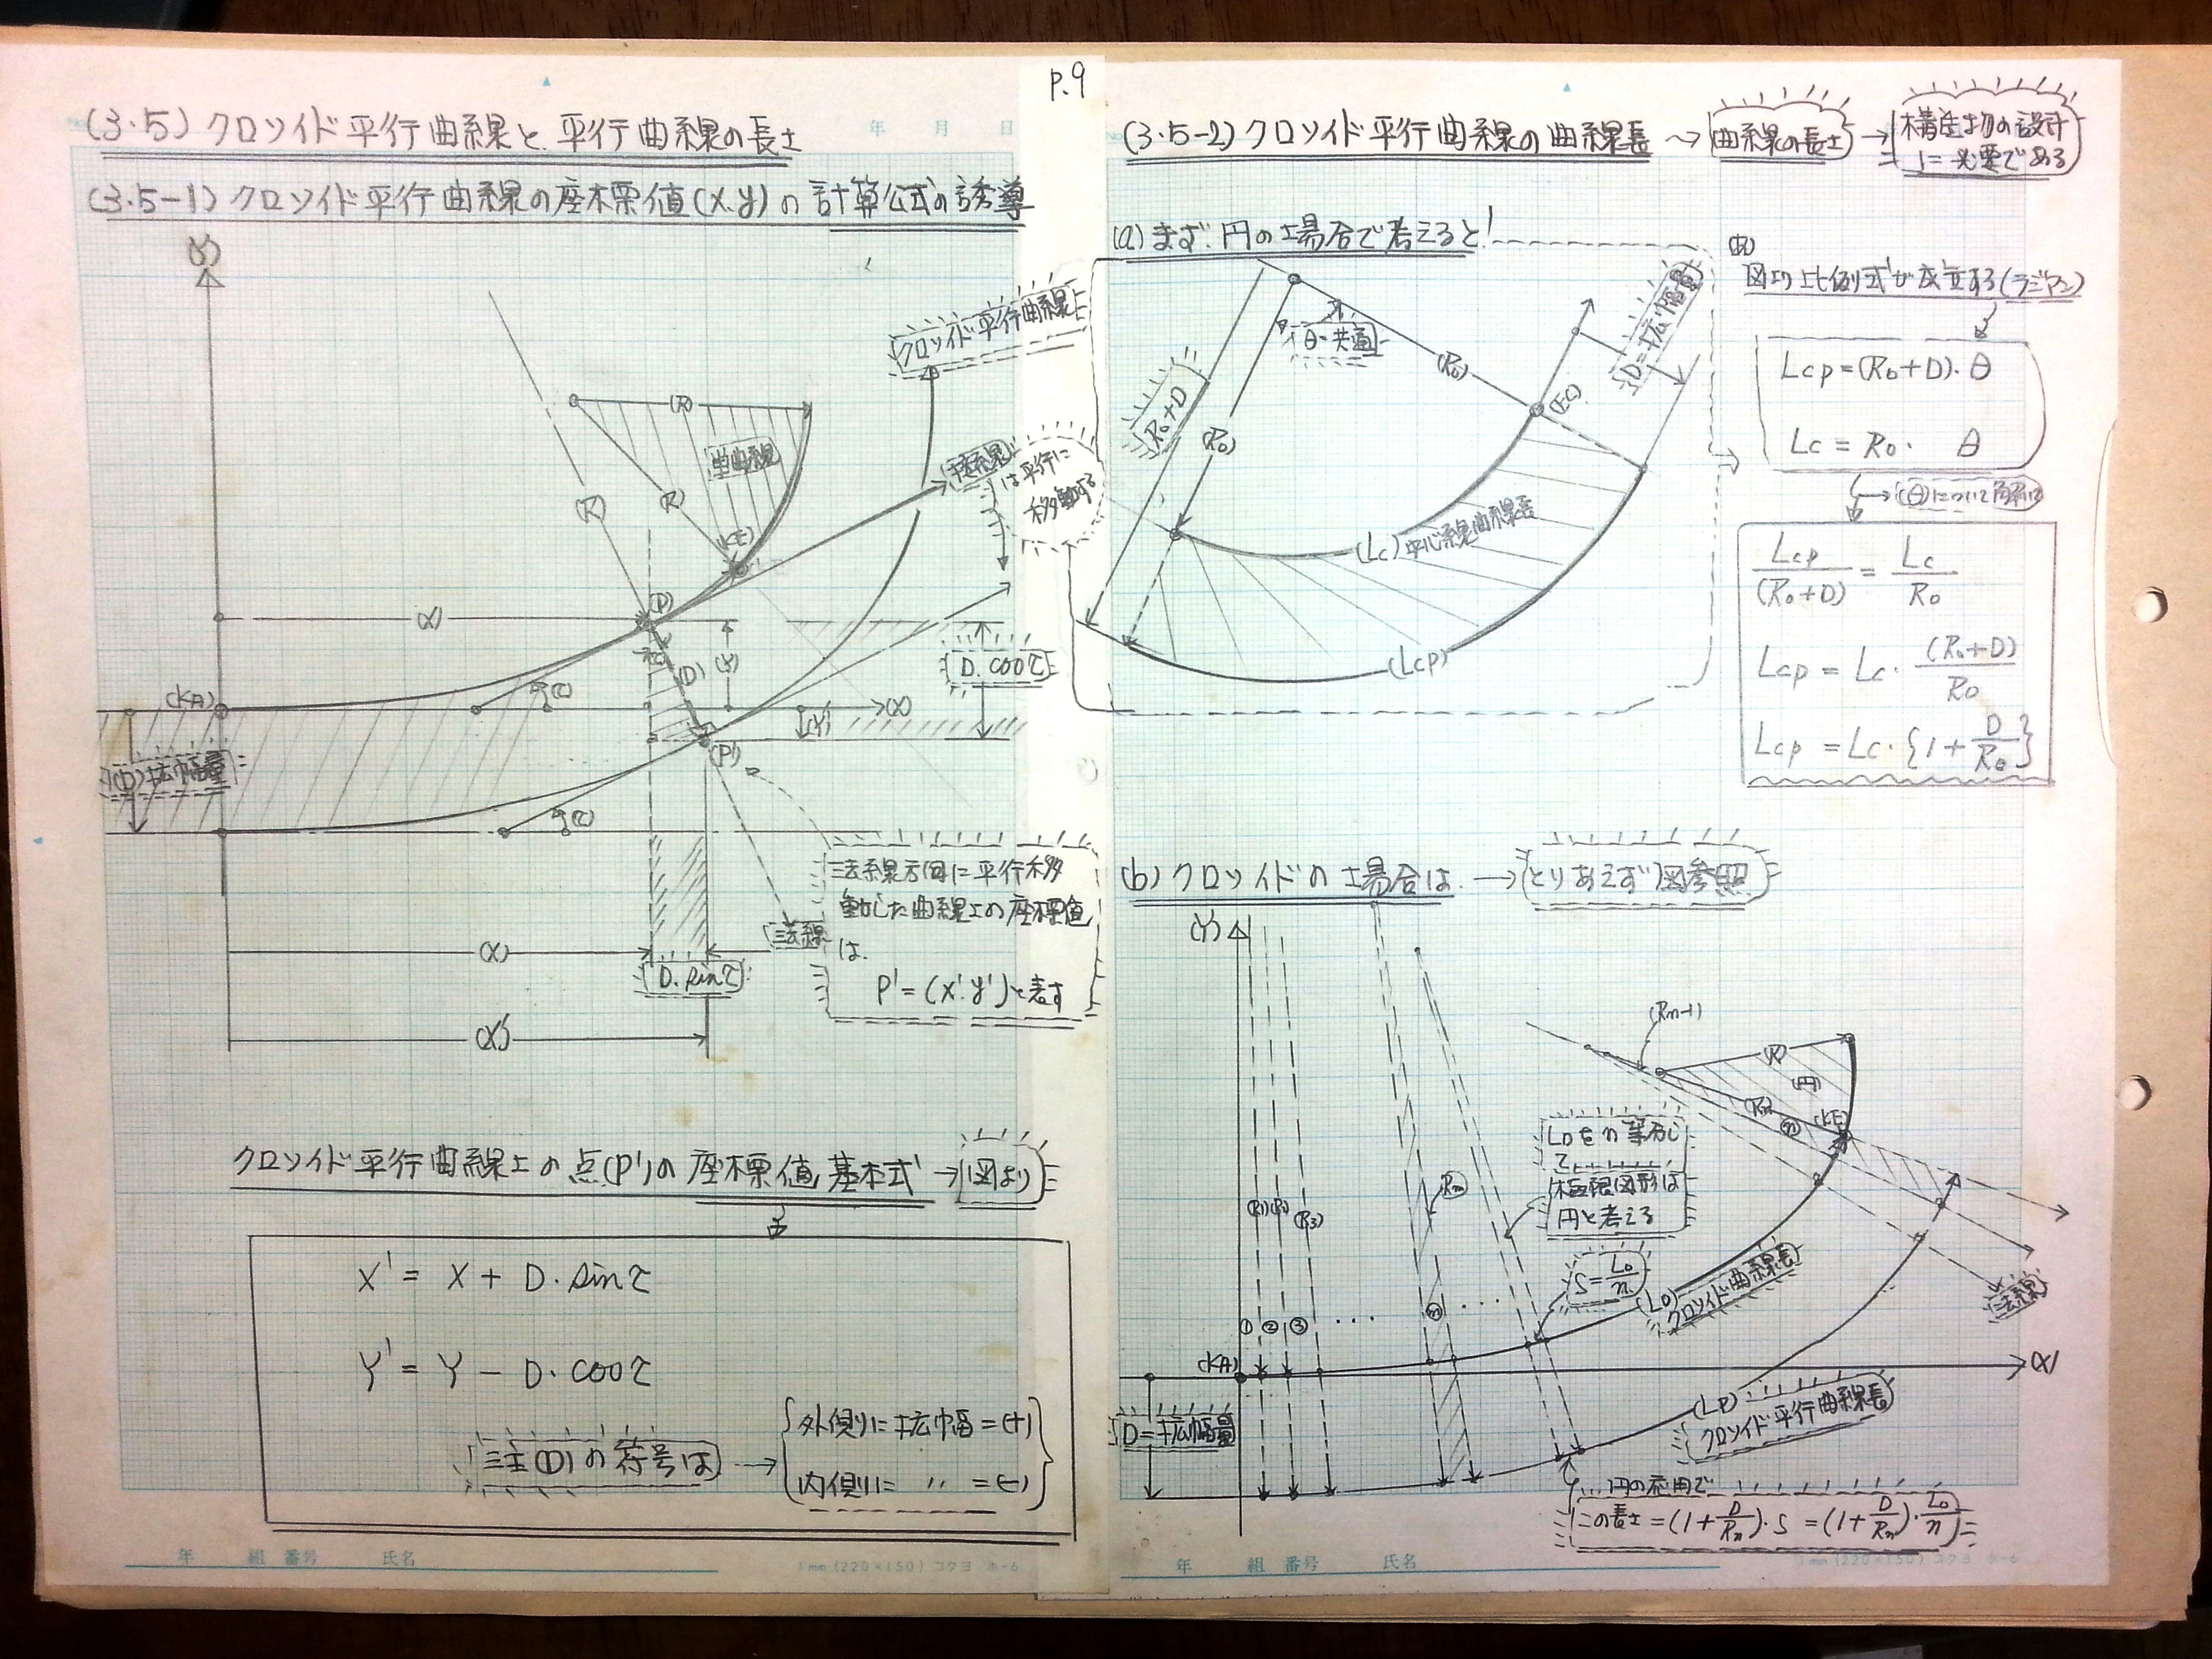 P.9
(3.5) クロソイド平行曲線と平行曲線の長さ
(3.5-1) クロソイド平行曲線の座標値(x.y)の計算公式の誘導
(Y)
クロソイド平行曲線
(R)
単曲線
(R)
(R)
(KE)
接線
は平行に
移動する
(P)
(X)
(τ)
(D)
(Y)
D.cosτ
(KA)
(τ)
(X)
(Y')
(P')
(D)拡幅量
(τ)
法線方向に平行移
動した曲線上の座標値
は.
P'=(x'.y')と表す
法線
(X)
D.sinτ
(X')
クロソイド平行曲線上の点(P')の座標値基本式→図より
X' = X + D.sinτ
Y' = Y - D.cosτ
注(D)の符号は→
外側に拡幅=(+)
内側に 〃 =(-)
年 組 番号 氏名
1mm(220×150) コクヨ ホ-6
年 月 日
(3.5-2) クロソイド平行曲線の曲線長→曲線の長さ→構造物の設計
に必要である
(a) まず.円の場合で考えると!
図より比例式が成立する(ラジアン)
θ.共通
(R0)
D=拡幅量
R0+D
(R0)
(EC)
(Lc)中心線曲線長
(Lcp)
Lcp=(R0+D).θ
Lc = R0. θ
(θ)について解いて
Lcp/(R0+D) = Lc/R0
Lcp = Lc.(R0+D)/R0
Lcp = Lc.{1+D/R0}
(b) クロソイドの場合は.→とりあえず図参照
(Y)
(Rn-1)
(R)
(円)
(Rn)
(n)
(KE)
L0をn等分し
て
極限図形は
円と考える
(R1)
(R2)
(R3)
(Rm)
S=L0/n
(L0)
クロソイド曲線長
法線
① ② ③ ... ⓜ ...
(KA)
(X)
D=拡幅量
(LP)
クロソイド平行曲線長
円の応用で
この長さ=(1+D/Rn).S=(1+D/Rn).L0/n
年 組 番号 氏名
1mm(220×150) コクヨ ホ-6